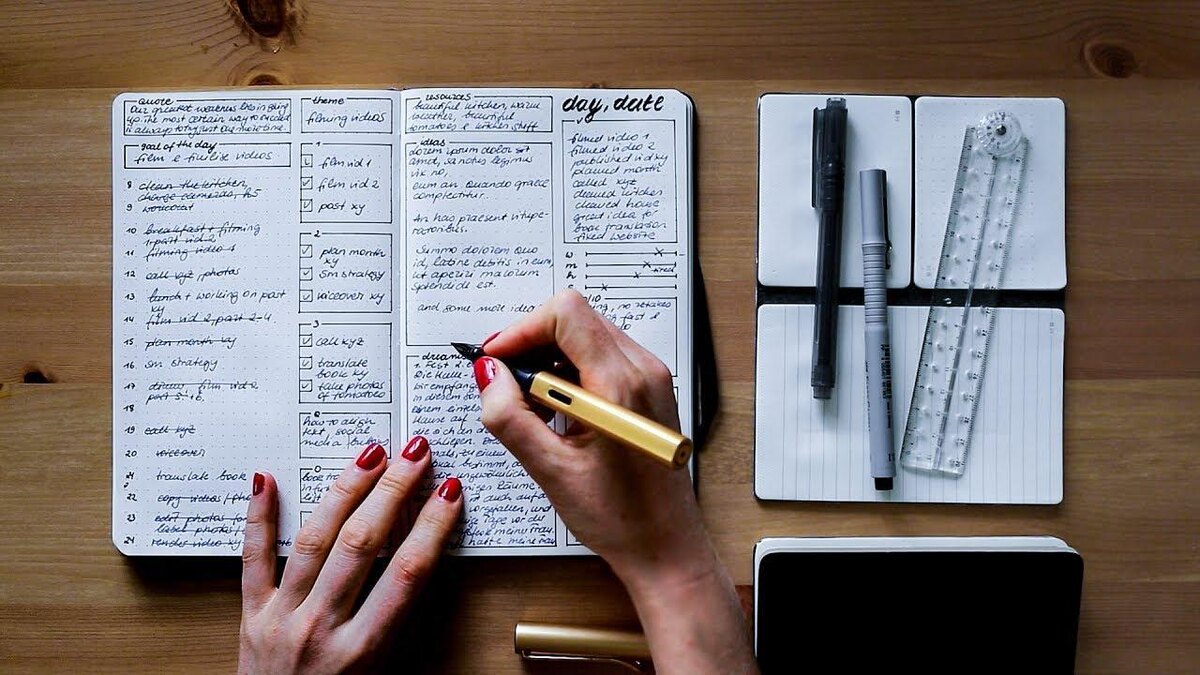 quote
Our greatest weakness lies in giving
up. The most certain way to succeed
is always to try just one more time.
goal of the day
film & finilise videos
8 clean the kitchen,
charge cameras, h5
9 workout
10 breakfast + filming
1. part vid 2
11 filming video 1
12 call xyz, photos
13 lunch + working on post
xy
14 film vid 2, part 2-4
15 plan month xy
16 sm strategy
17 film vid 2
part 5+6
18
19 call xyz
20 voiceover
21 translate book
22 copy videos/pho
23 edit photos for
label photos/
24 render video xy
theme
filming videos
1
film vid 1
film vid 2
post xy
2
plan month
xy
sm strategy
voiceover xy
3
call xyz
translate
book xy
take photos
of tomatoes
how to align
text, social
media
book
resources
beautiful kitchen, warm
weather, beautiful
tomatoes & kitchen stuff
ideas
dorem ipsum dolor sit
amd, sanctus legimus
vix no,
eum an quando graece
complectitur.
An has praesent vitupe-
ratoribus.
Summo dolorem quo
id, latine debitis in eum,
ut aperiri malorum
splendide est.
and some more ideas
dreams
1. Fest 2.
Die Hülle
bir empfang
in diesem
einem
Hause auf
schliesen.
bestimmt,
die ungewöhnlich
Räume.
auch auf
vorgefallen, und
Tage vor die
meine Frau
hatte meine
day, date
filmed video 1
filmed video 2
published vid xy
planed month
called xyz
cleaned kitchen
cleaved house
great idea for
book translation
fixed website
w
m
h
s
/10
no retakes
fast &